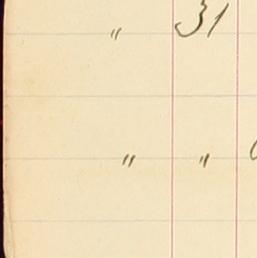 " 31
" "